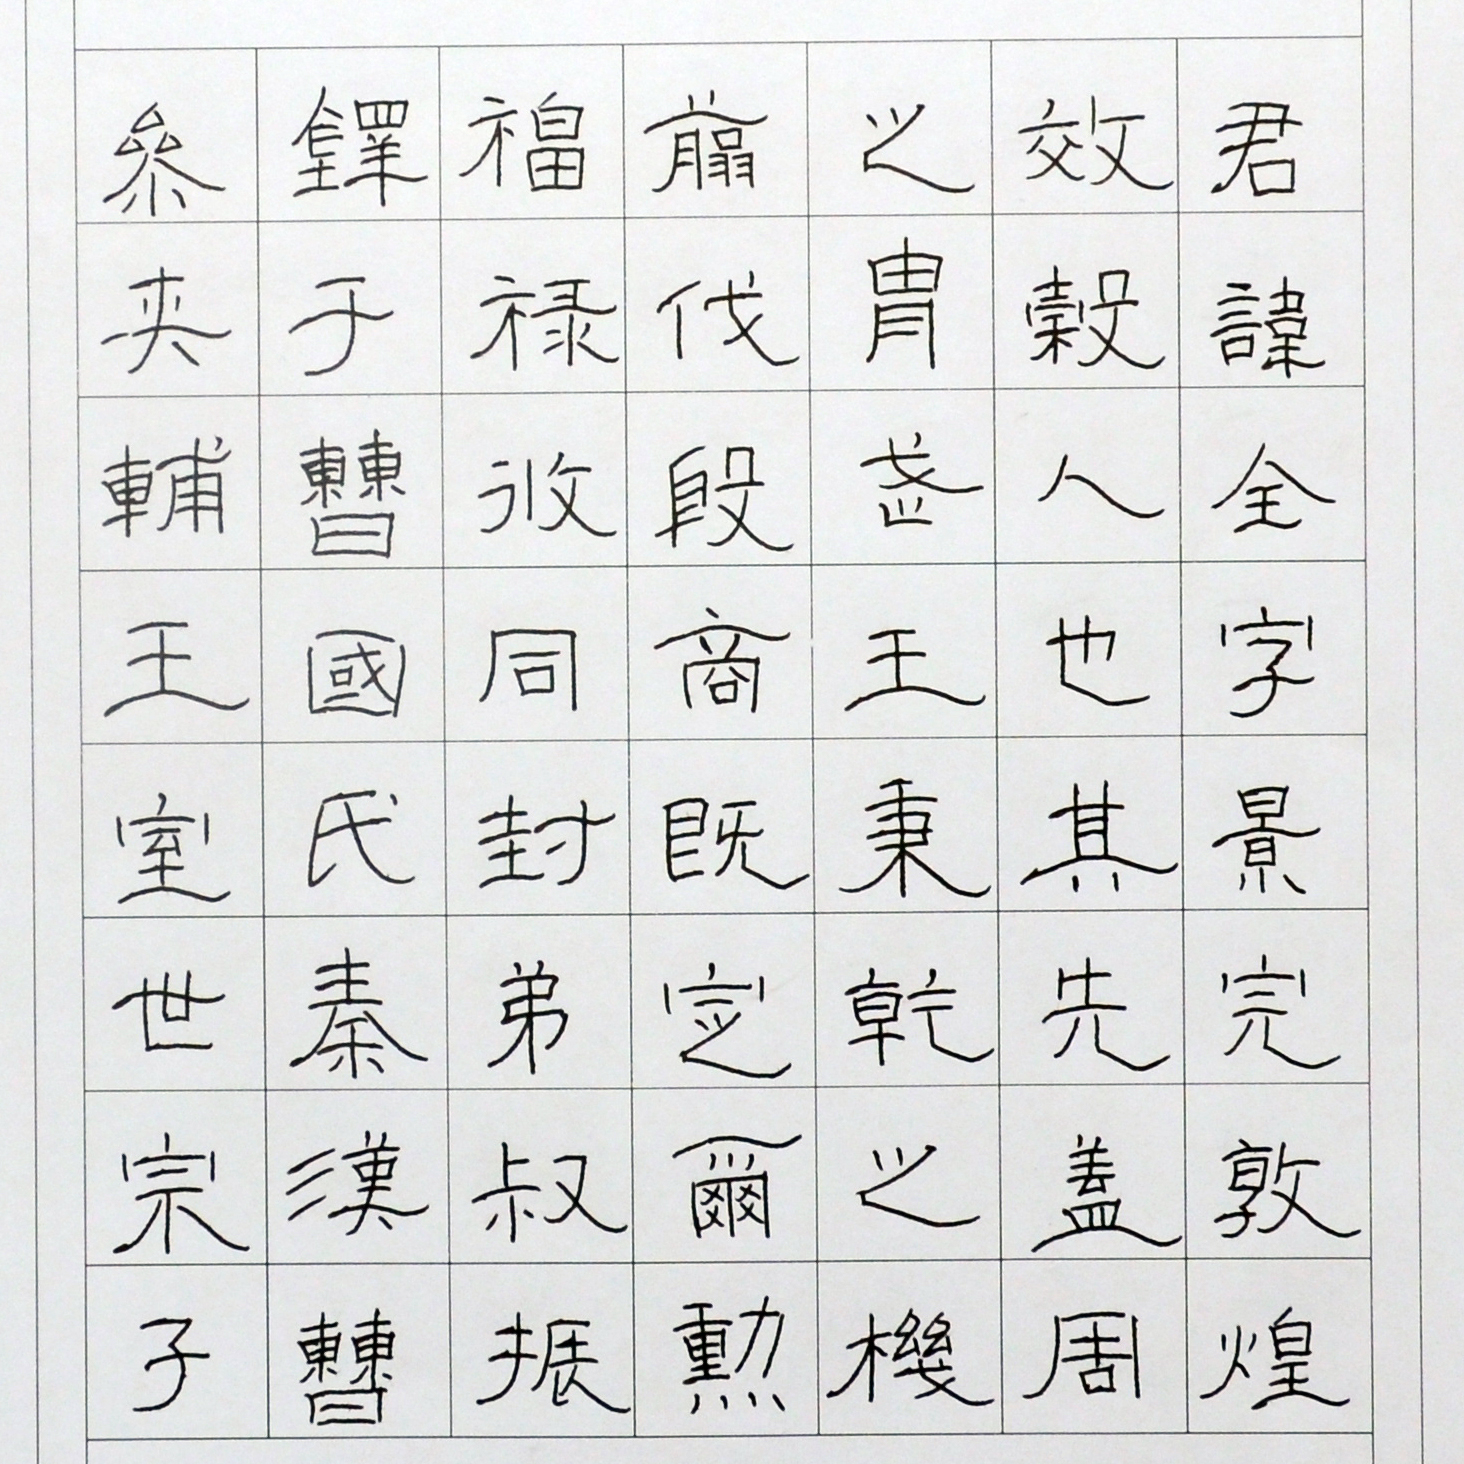 君諱全字景完敦煌
效穀人也其先蓋周
之胄武王秉乾之機
翦伐殷商既定爾勲
福祿攸同封弟叔振
鐸于曹國氏秦漢曹
參夾輔王室世宗子